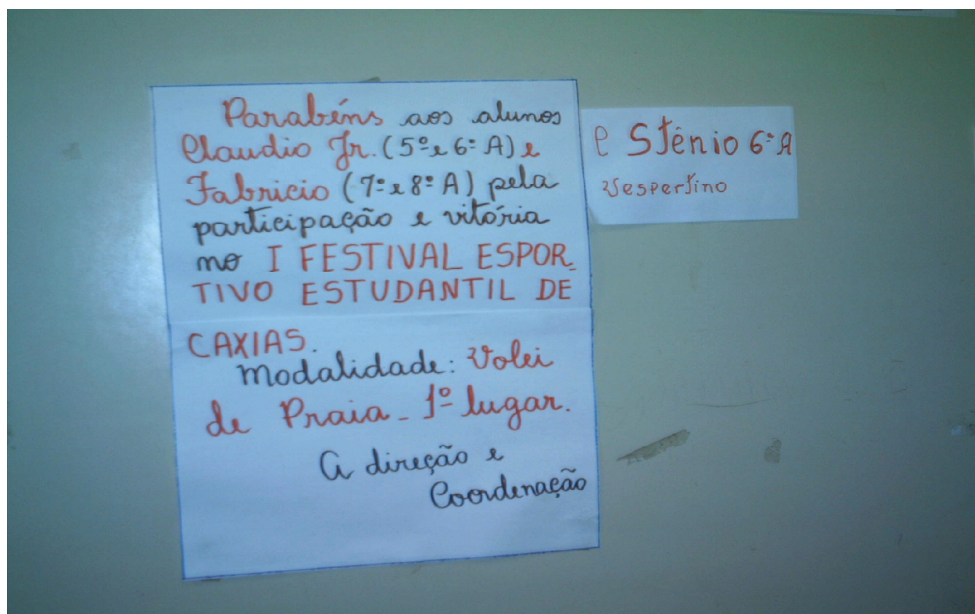 Parabéns aos alunos
Claudio Jr. (5º e 6ª A) e
Fabricio (7ª e 8ª A) pela
participação e vitória
no I FESTIVAL ESPOR-
TIVO ESTUDANTIL DE
CAXIAS.
Modalidade: Volei
de Praia - 1º lugar.
A direção e
Coordenação
e Stênio 6ª A
Vespertino